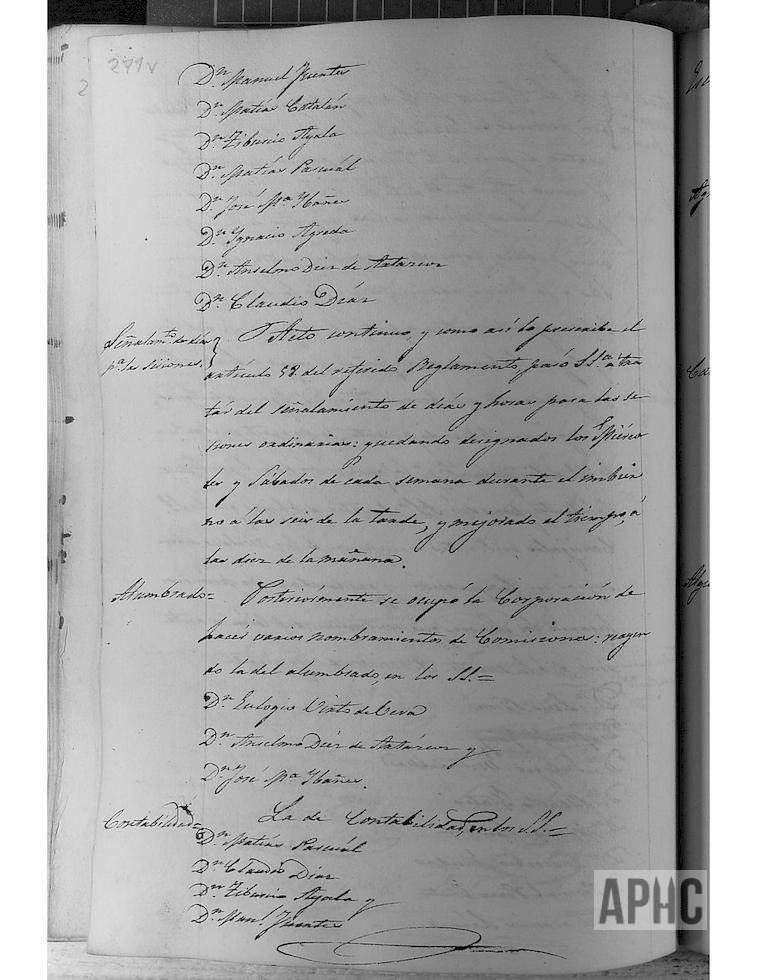 271v
Dn Manuel Fuentes
Dn Matías Catalán
Dn Tiburcio Ayala
Dn Matías Pascuál
Dn José Ma Ybañez
Dn Ygnacio Agreda
Dn Anselmo Diez de Antarcur
Dn Claudio Diaz
Señalamto de dias
pa las sesiones.
Acto continuo, y como así lo prescribe el
artículo 53. del referido Reglamento pasó SSa a tra
tár del señalamiento de dias y horas para las se
siones ordinarias: quedando designados los Miérco
les y Sábados de cada semana durante el imbier
no á las seis de la tarde, y mejorado el tiempo, á
las diez de la mañana.
Alumbrado=
Posteriormente se ocupó la Corporación de
hacér varios nombramientos de Comisiones: recayen
do la del alumbrado, en los SS.=
Dn Eulogio Pinto de Cera
Dn Anselmo Diez de Antarcur y
Dn José Ma Ybañez.
Contabilidad=
La de Contabilidad, en los SS.=
Dn Matías Pascuál
Dn Claudio Diaz
Dn Tiburcio Ayala y
Dn Manl Fuentes
APHC